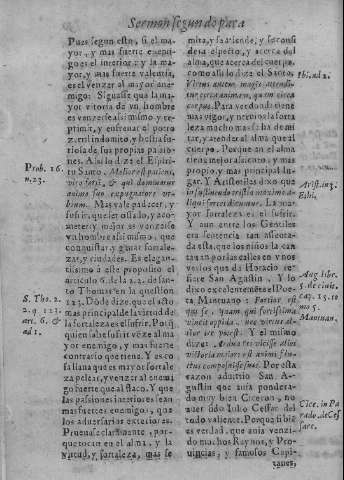 Sermon segundo para
Pues segun esto, si el ma-
yor, y mas fuerte enemi-
go es el interior: y la ma-
yor, y mas fuerte valentia,
es el vencer al mayor ene-
migo: Siguesse que la ma-
yor vitoria de vn hombre
es vencerse a si mismo y re-
primir, y enfrenar el potro
zerril indomito, y la furia
de sus propias passio-
nes. Assi lo dize el Espiri-
tu Santo. Melior est patiens,
viro forti, & qui dominatur
animo suo expugnatore vr-
bium. Mas vale padecer, y
sufrir, que
meter; y mejor es vencerse
vn hombre a si mismo, que
conquistar, y ganar fortale-
zas, y ciudades. Es elegan-
tissimo a este proposito el
articulo 6. de la 2.2. de san-
to Thomas en la question
123. Dõde dize, que el acto
mas principal de la virtud de
la fortaleza es el sufrir. Porq̃
quien sabe sufrir vẽze al ma
yor enemigo, y mas fuerte
contrario que tiene. Y es co
sa llana que es mayor fortale
za pelear, y vencer al enemi
go fuerte que al flaco. Y que
las passiones interiores sean
mas fuertes enemigos, que
los adversarios exteriores.
Pruevase claramente, por-
que tocan en el alma, y la
virtud, y fortaleza, mas se
Prob. 16.
n.23.
S. Tho. 2.
2. q. 123.
art. 6. &
ad 1.
mira, y se atiende, y se consi
dera respecto, y acerca del
alma, que acerca del cuerpo.
como assi lo dize el Santo.
Virtus autem magis attendi-
tur circa animam, quam circa
corpus. Para verdonde tiene
mas vigor, y nervio la forta
leza mucho mas se ha de mi
rar, y atender al alma que al
cuerpo. Porque en al alma
tiene mejor, y mas pro
pio, y mas principal lu-
gar. Y Aristoteles dixo que
maximo ali-
qui fortes dicuntur. La ma
yor fortaleza es el sufrir.
Y aun entre los Gentiles
era sentencia tan assenta-
da esta, que los niños la can
tauan por las calles en vnos
versos que da Horacio re-
fiere San Agustin. Y lo
dixo excelentemente el Poe-
ta Mantuano: Fortior est
qui se, quam qui fortissima
vincit oppida, nec virtus al-
tior ire potest. Y el mismo
dize:
est animi fluc-
tus composuisse Por esta
razon advirtio San Au-
gustin que auia pondera-
do muy bien Ciceron, no
auer sido Iulio Cessar del
todo valiente. Porque si bie
es verdad, que auia venzi-
do muchos Reynos, y Pro-
uincias, y famosos Capi-
tanes,
Ibi. ad 2.
Arist. in 3.
Ethi.
Aug. libr.
5. de ciuit.
cap. 13. to
mo 5.
Mantuan.
Cice. in Pa
rado. de Ces
sare.